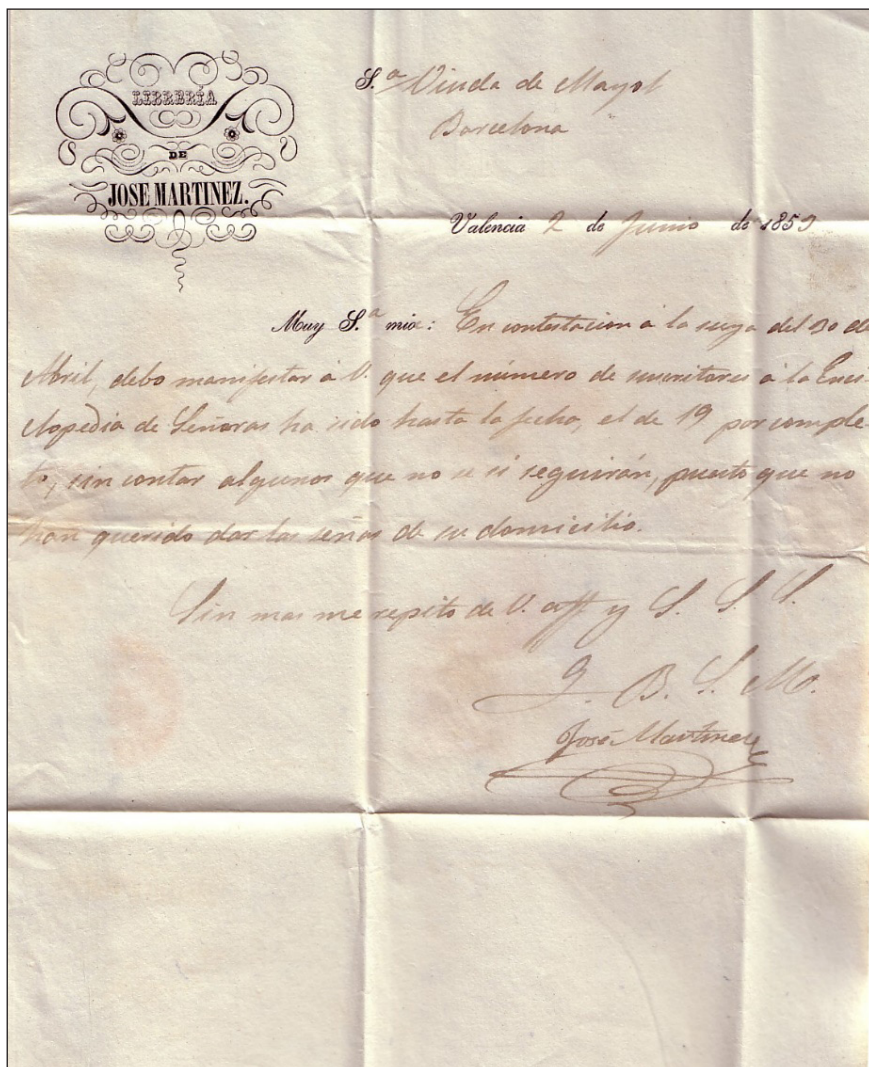 LIBRERÍA
DE
JOSE MARTINEZ.
S.ª Viuda de Mayol
Barcelona
Valencia 2 de Junio de 1859
Muy S.ª mia: En contestacion à la suya del 30 de
Abril, debo manifestar à V. que el número de suscritores à la Enci-
clopedia de Señoras ha sido hasta la fecha, el de 19 por comple-
to, sin contar algunos que no se si seguirán, puesto que no
han querido dar las señas de su domicilio.
Sin mas me repito de V. aff. y S. S. S.
Q. B. S. M.
José Martinez